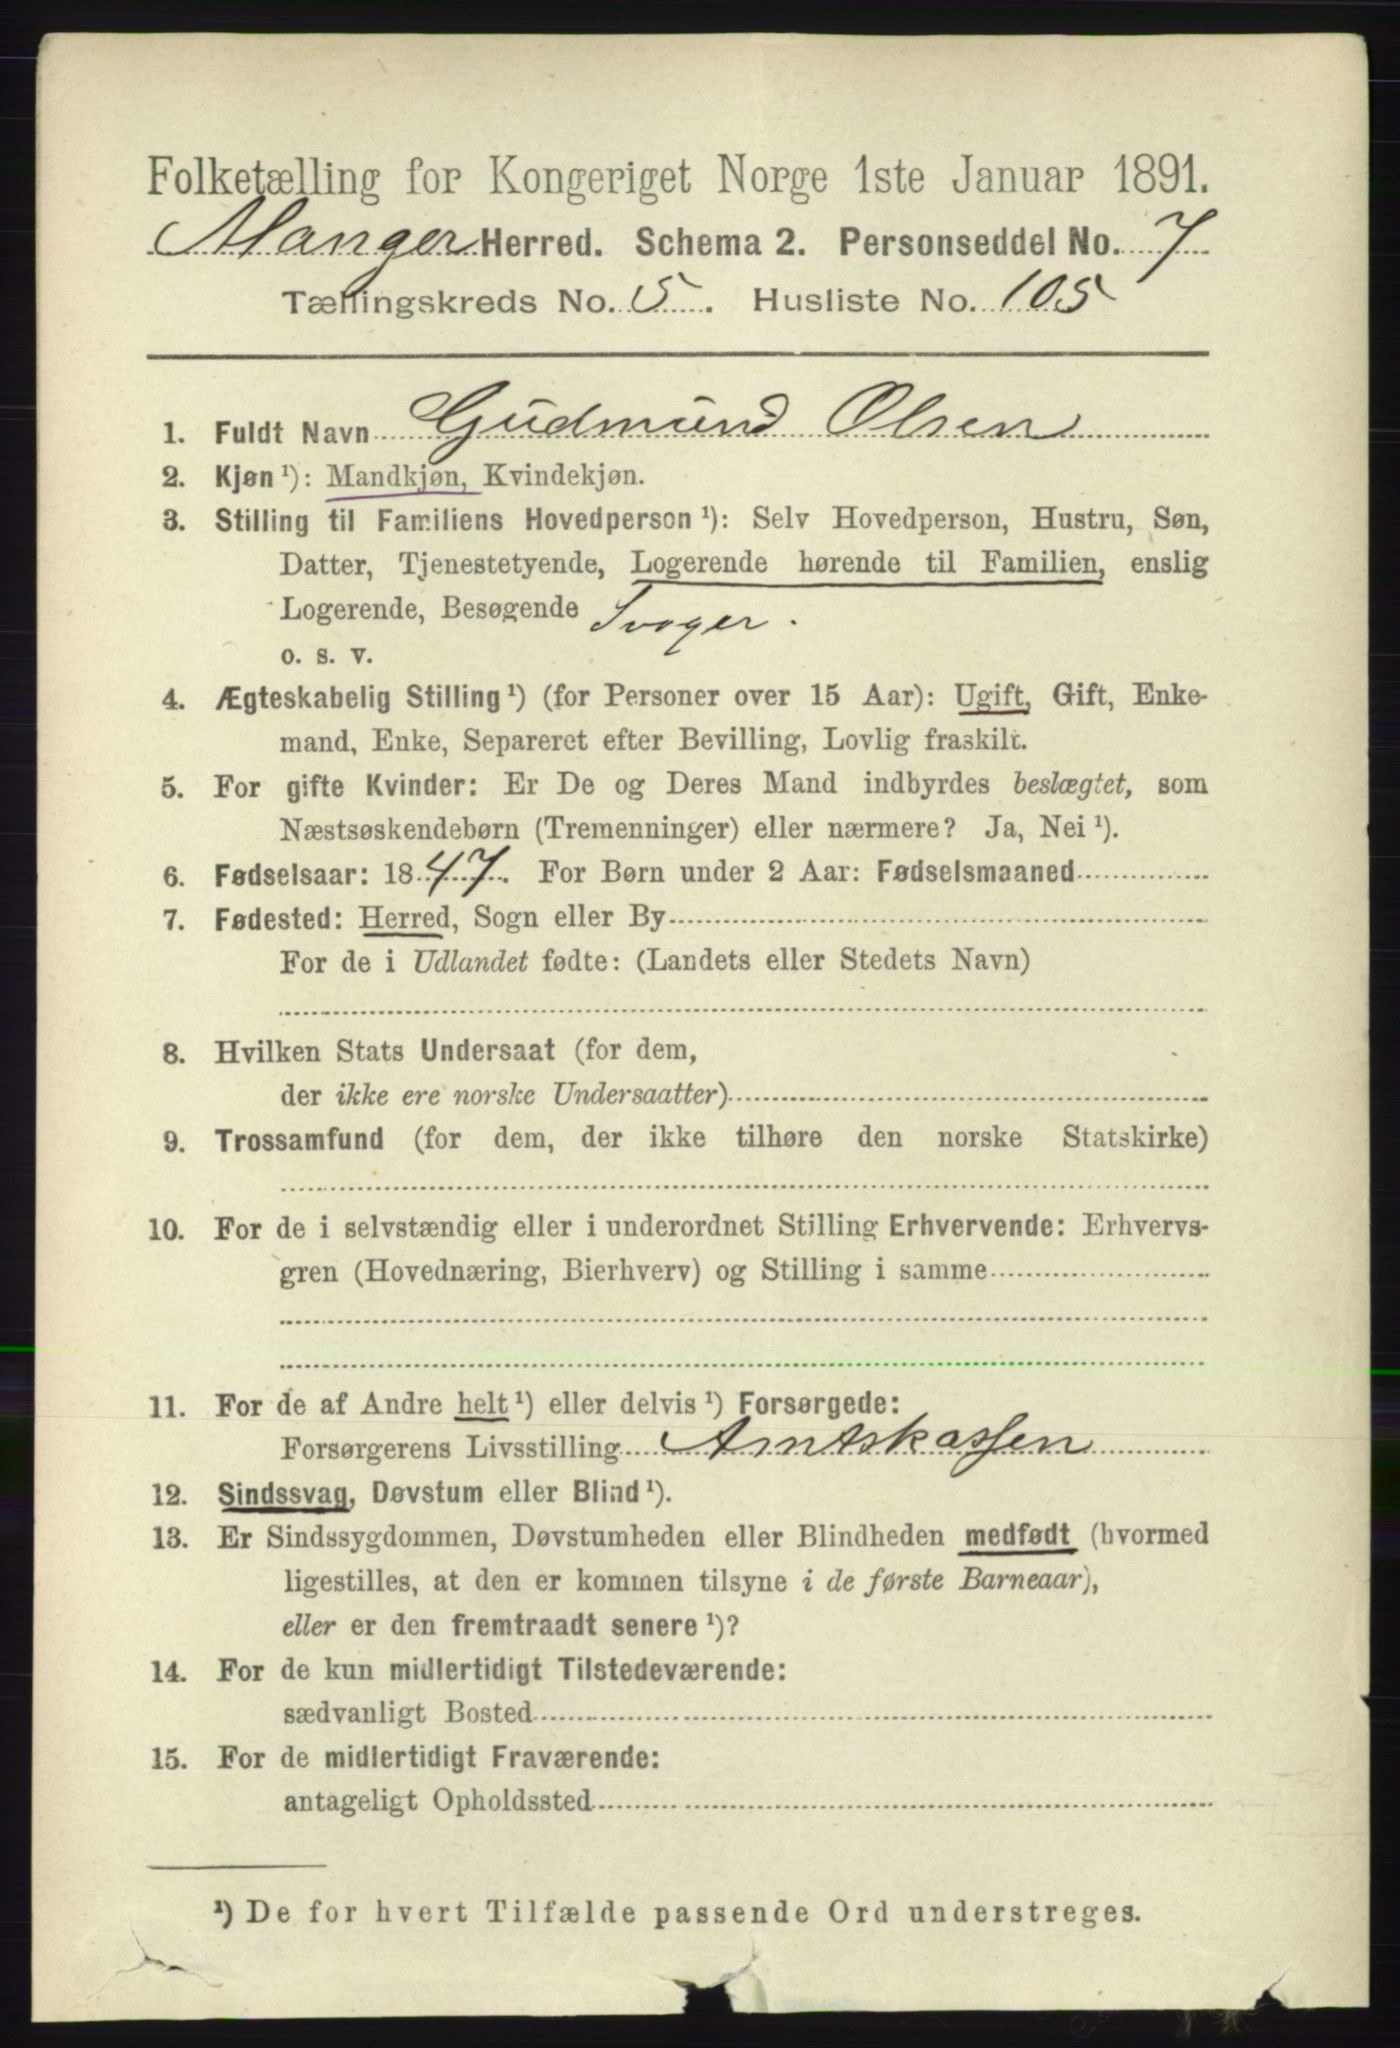 Folketælling for Kongeriget Norge 1ste Januar 1891.
Manger Herred. Schema 2. Personseddel No. 7
Tællingskreds No. 5. Husliste No. 105
1. Fuldt Navn Gudmund Olsen
2. Kjøn ¹): Mandkjøn, Kvindekjøn.
3. Stilling til Familiens Hovedperson ¹): Selv Hovedperson, Hustru, Søn,
Datter, Tjenestetyende, Logerende hørende til Familien, enslig
Logerende, Besøgende Svoger.
o. s. v.
4. Ægteskabelig Stilling ¹) (for Personer over 15 Aar): Ugift, Gift, Enke-
mand, Enke, Separeret efter Bevilling, Lovlig fraskilt.
5. For gifte Kvinder: Er De og Deres Mand indbyrdes beslægtet, som
Næstsøskendebørn (Tremenninger) eller nærmere? Ja, Nei ¹).
6. Fødselsaar: 1847. For Børn under 2 Aar: Fødselsmaaned
7. Fødested: Herred, Sogn eller By
For de i Udlandet fødte: (Landets eller Stedets Navn)
8. Hvilken Stats Undersaat (for dem,
der ikke ere norske Undersaatter)
9. Trossamfund (for dem, der ikke tilhøre den norske Statskirke)
10. For de i selvstændig eller i underordnet Stilling Erhvervende: Erhvervs-
gren (Hovednæring, Bierhverv) og Stilling i samme
11. For de af Andre helt ¹) eller delvis ¹) Forsørgede:
Forsørgerens Livsstilling Amtskassen
12. Sindssvag, Døvstum eller Blind ¹).
13. Er Sindssygdommen, Døvstumheden eller Blindheden medfødt (hvormed
ligestilles, at den er kommen tilsyne i de første Barneaar),
eller er den fremtraadt senere ¹)?
14. For de kun midlertidigt Tilstedeværende:
sædvanligt Bosted
15. For de midlertidigt Fraværende:
antageligt Opholdssted
¹) De for hvert Tilfælde passende Ord understreges.